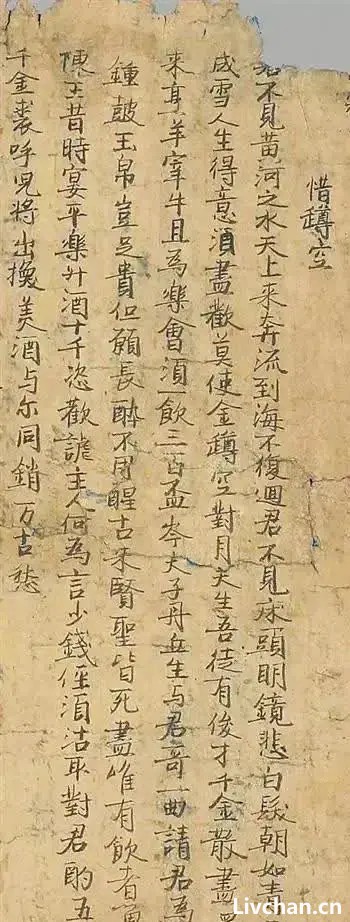 惜罇空
君不見黃河之水天上來奔流到海不復迴君不見床頭明鏡悲白髮朝如青
成雪人生得意須盡歡莫使金罇空對月天生吾徒有俊才千金散盡
來烹羊宰牛且為樂會須一飲三百盃岑夫子丹丘生与君哥一曲請君為
鍾鼓玉帛豈足貴但願長醉不用醒古來賢聖皆死盡唯有飲者留
陳王昔時宴平樂斗酒十千恣歡謔主人何為言少錢徑須沽取對君酌五
千金裘呼兒將出換美酒与尔同銷万古愁
Livchan.cn